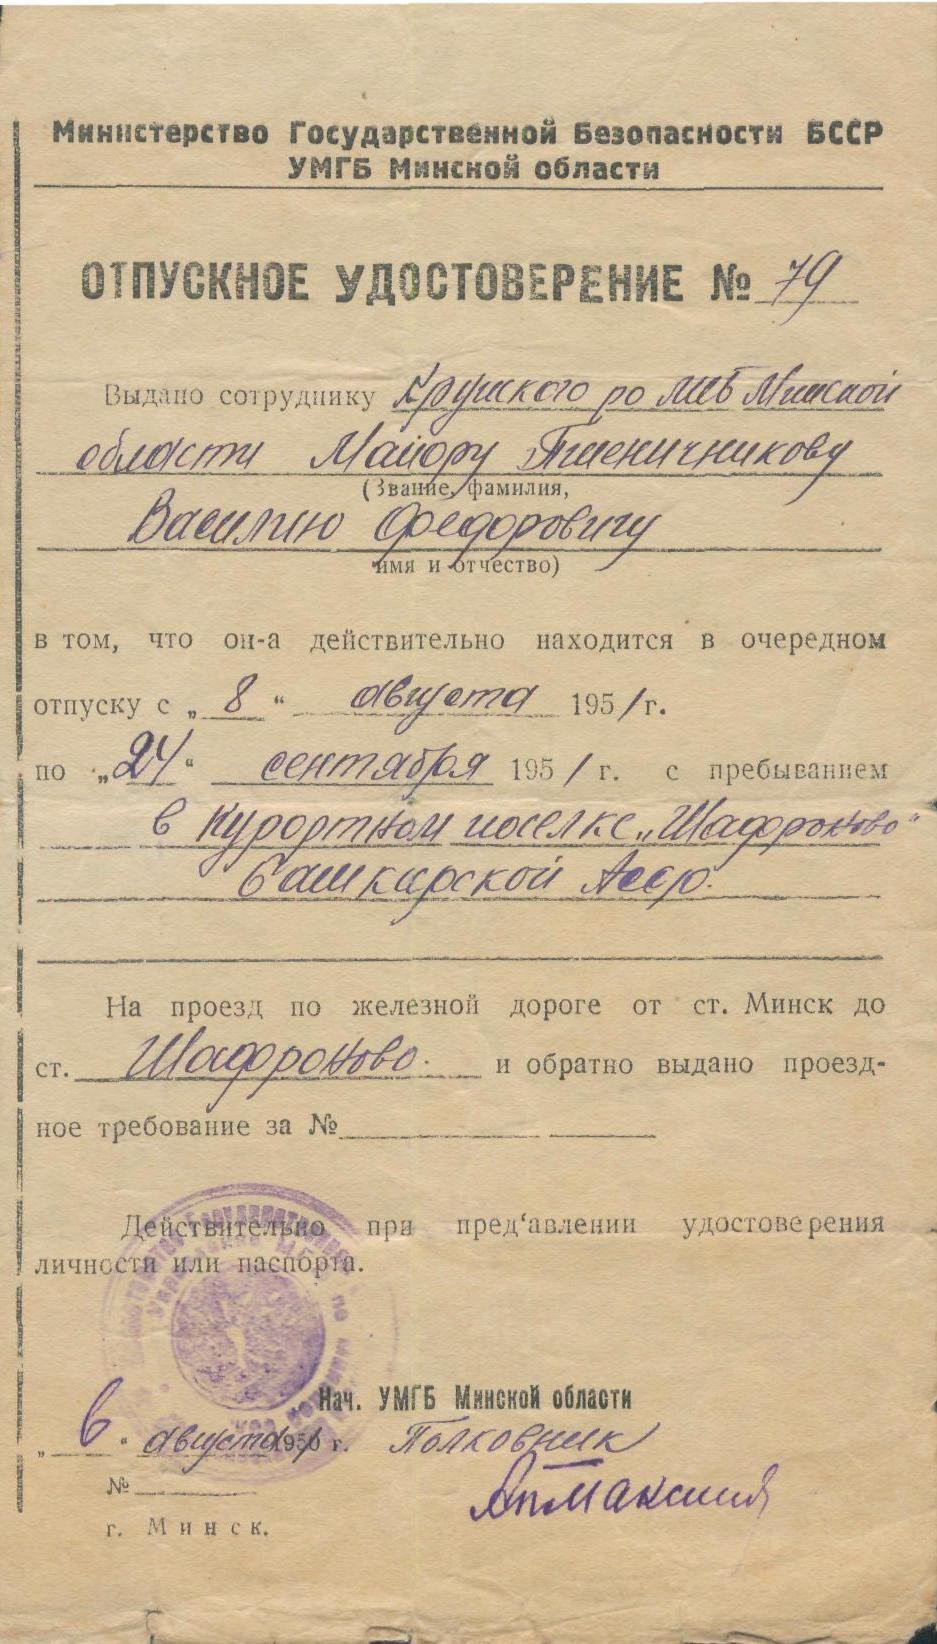 Министерство Государственной Безопасности БССР
УМГБ Минской области
ОТПУСКНОЕ УДОСТОВЕРЕНИЕ № 79
Выдано сотруднику Крупского ро МГБ Минской
области Майору Пшеничникову
(Звание, фамилия,
Василию Федоровичу
имя и отчество)
в том, что он-а действительно находится в очередном
отпуску с „ 8 “ августа 1951 г.
по „24“ сентября 1951 г. с пребыванием
в курортном поселке „Шафроново“
Башкирской Асср.
На проезд по железной дороге от ст. Минск до
ст. Шафроново. и обратно выдано проезд-
ное требование за №
Действительно при пред‘авлении удостоверения
личности или паспорта.
Нач. УМГБ Минской области
„ 6 “ августа 1951 г. Полковник
№
г. Минск.